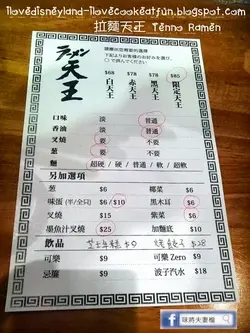 ilovedisneyland-ilovecookeatfun.blogspot.com
拉麵天王 Tenno Ramen
ラーメン
天王
請圈出您需要的選擇
下記よりお客様のお好みを選び、
○で囲んでください
$68 $78 $78 $85
白天王 赤天王 黑天王 限定天王
口味 淡 普通
香油 淡 普通
叉燒 要 不要
葱 要 不要
麵 超硬 / 硬 / 普通 / 軟 / 超軟
另加選項
葱 $6 椰菜 $6
味蛋 (半/全只) $6 / $10 黑木耳 $6
叉燒 $15 紫菜 $6
墨魚汁叉燒 $25 加麵底 $10
飲品
$28
可樂 $9 可樂 Zero $9
忌廉 $9 波子汽水 $18
味將夫妻檔